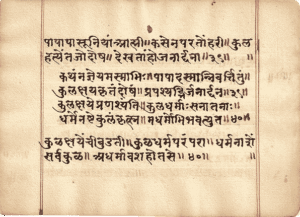 पापापासूनियां आम्ही॥ कैसे न परतों हरी॥ कुळ
हत्येनें जो दोष॥ देखतां हो जनार्दना॥ ३९॥
कथं न ज्ञेयमस्माभिः॥ पापादस्मान्निवर्त्तितुं॥
कुळक्षयकृतं दोषं॥ प्रपश्यद्भिर्जनार्दन॥ ३९॥
कुळक्षये प्रणश्यंति॥ कुळधर्माः सनातनाः॥
धर्मे नष्टे कुळं कृत्स्नं॥ मधर्मोभिभवत्युत॥ ४०॥
कुळक्षयेंची बुडती॥ कुळधर्म परंपरा॥ धर्मनाशें
सर्व कुळ॥ अधर्मी वश होतसे॥ ४०॥